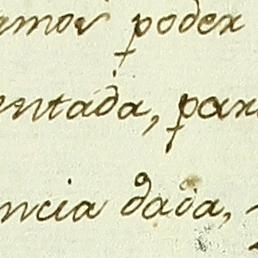 amos poder
entada, par
ncia dada,